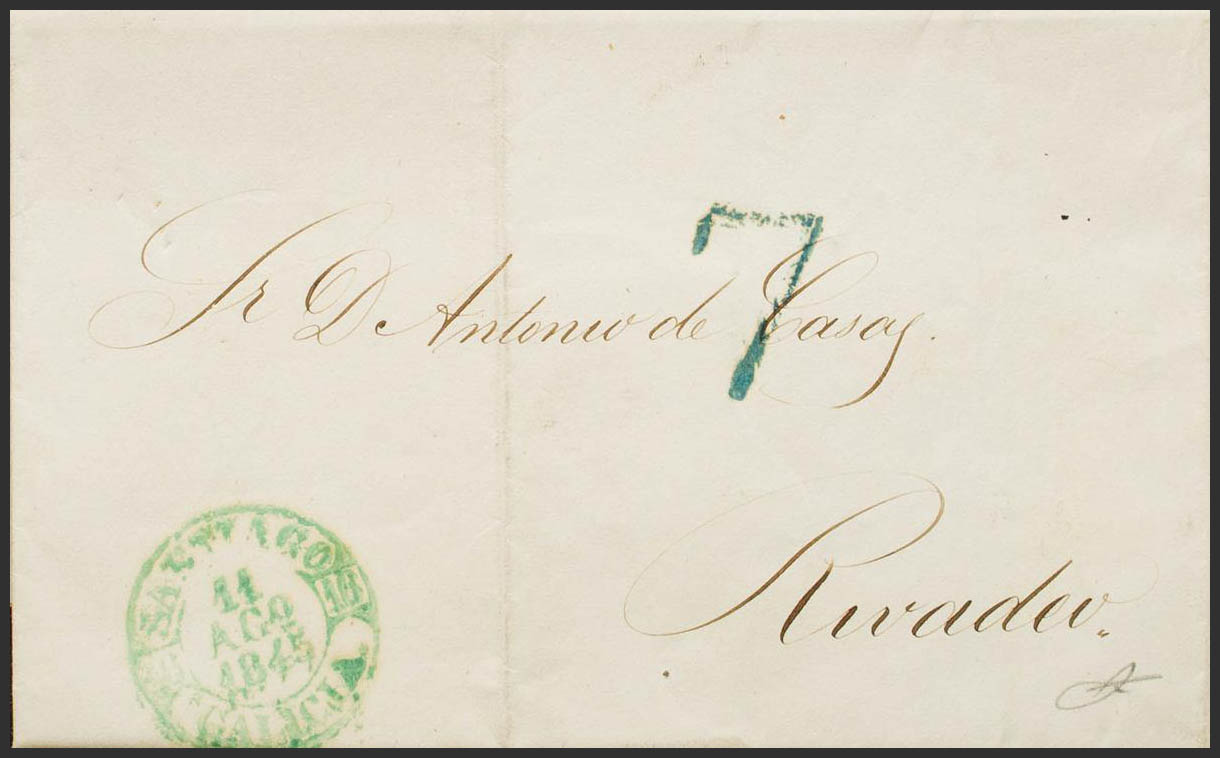 7
Sr D Antonio de Casas.
Rivadeo
SANTIAGO
16
11
AGO
184
GALICIA